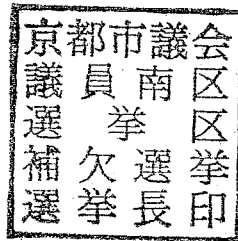 京都市議会
議員南区
選挙区
補欠選挙
選挙長印